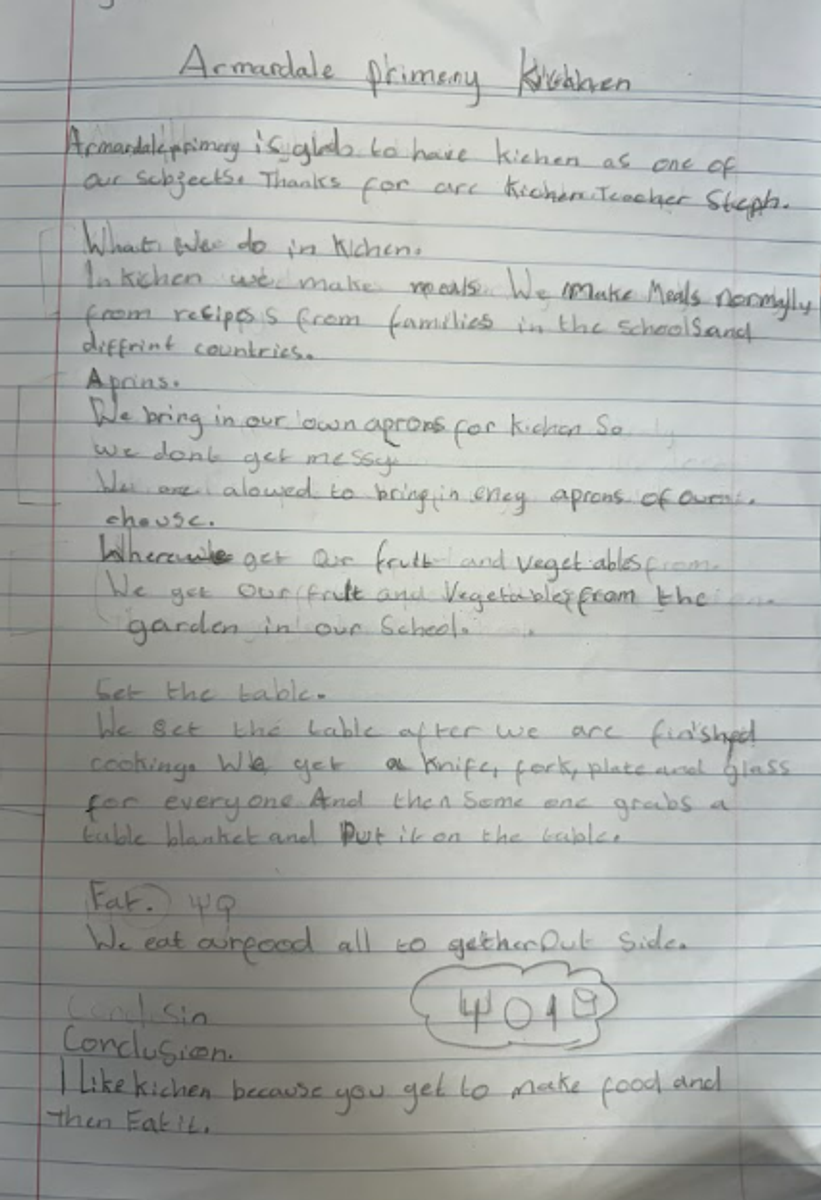 Armardale primeny Kichhen
Armardale primery is glab to have kichen as one of
our subjects. Thanks for arc Kichen Teacher Steph.
What we do in Kichen.
In kichen we make meals. We make Meals normally
from recipes s from families in the schools and
diffrint countries.
Aprins.
We bring in our own aprons for kichen So
we dont get messy
We are alowed to bring in eney aprons of our
chouse.
Where we get our frutt and veget ables from.
We get our frutt and Vegetables from the
garden in our School.
Set the table.
We set the table after we are finished
cooking. We get a knife, fork, plate and glass
for everyone. And then Some one grabs a
table blanket and Put it on the table.
Eat. 49
We eat airfood all to gether Out Side.
4019
Conclusin
Conclusion.
I Like kichen because you get to make food and
then Eat it.